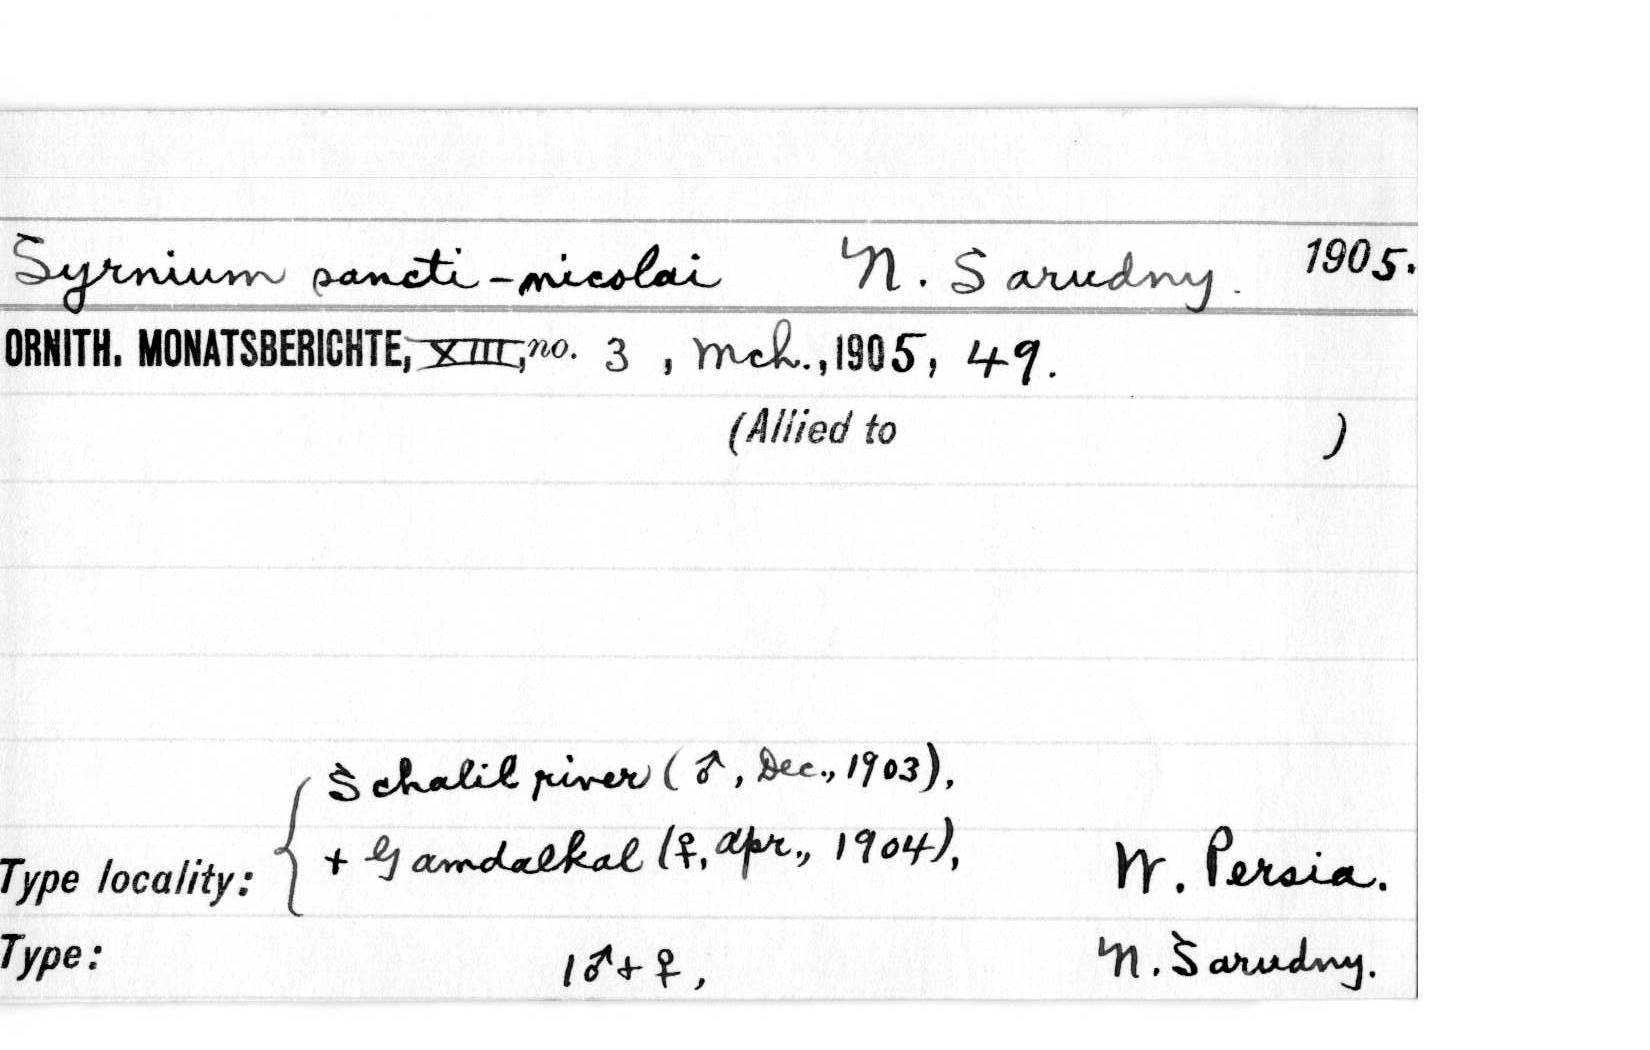 Syrnium sancti-nicolai N. Sarudny. 1905.
ORNITH. MONATSBERICHTE, XIII, no. 3, Mch., 1905, 49.
(Allied to )
Schalil river (♂, Dec., 1903),
+ Gamdalkal (♀, Apr., 1904),
Type locality: W. Persia.
Type: 1♂ + ♀, N. Sarudny.